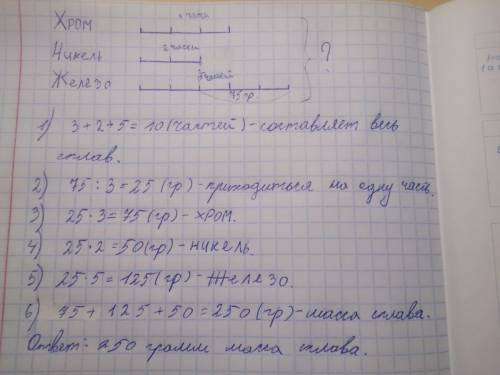 Хром 3 части
Никель 2 части
?
Железо 5 частей
75 гр.
1) 3+2+5=10 (частей) - составляет весь
сплав.
2) 75 : 3 = 25 (гр) - приходиться на одну часть.
3) 25 · 3 = 75 (гр) - хром.
4) 25 · 2 = 50 (гр) - никель.
5) 25 · 5 = 125 (гр) - Железо.
6) 75 + 125 + 50 = 250 (гр) - масса сплава.
Ответ: 250 грамм масса сплава.